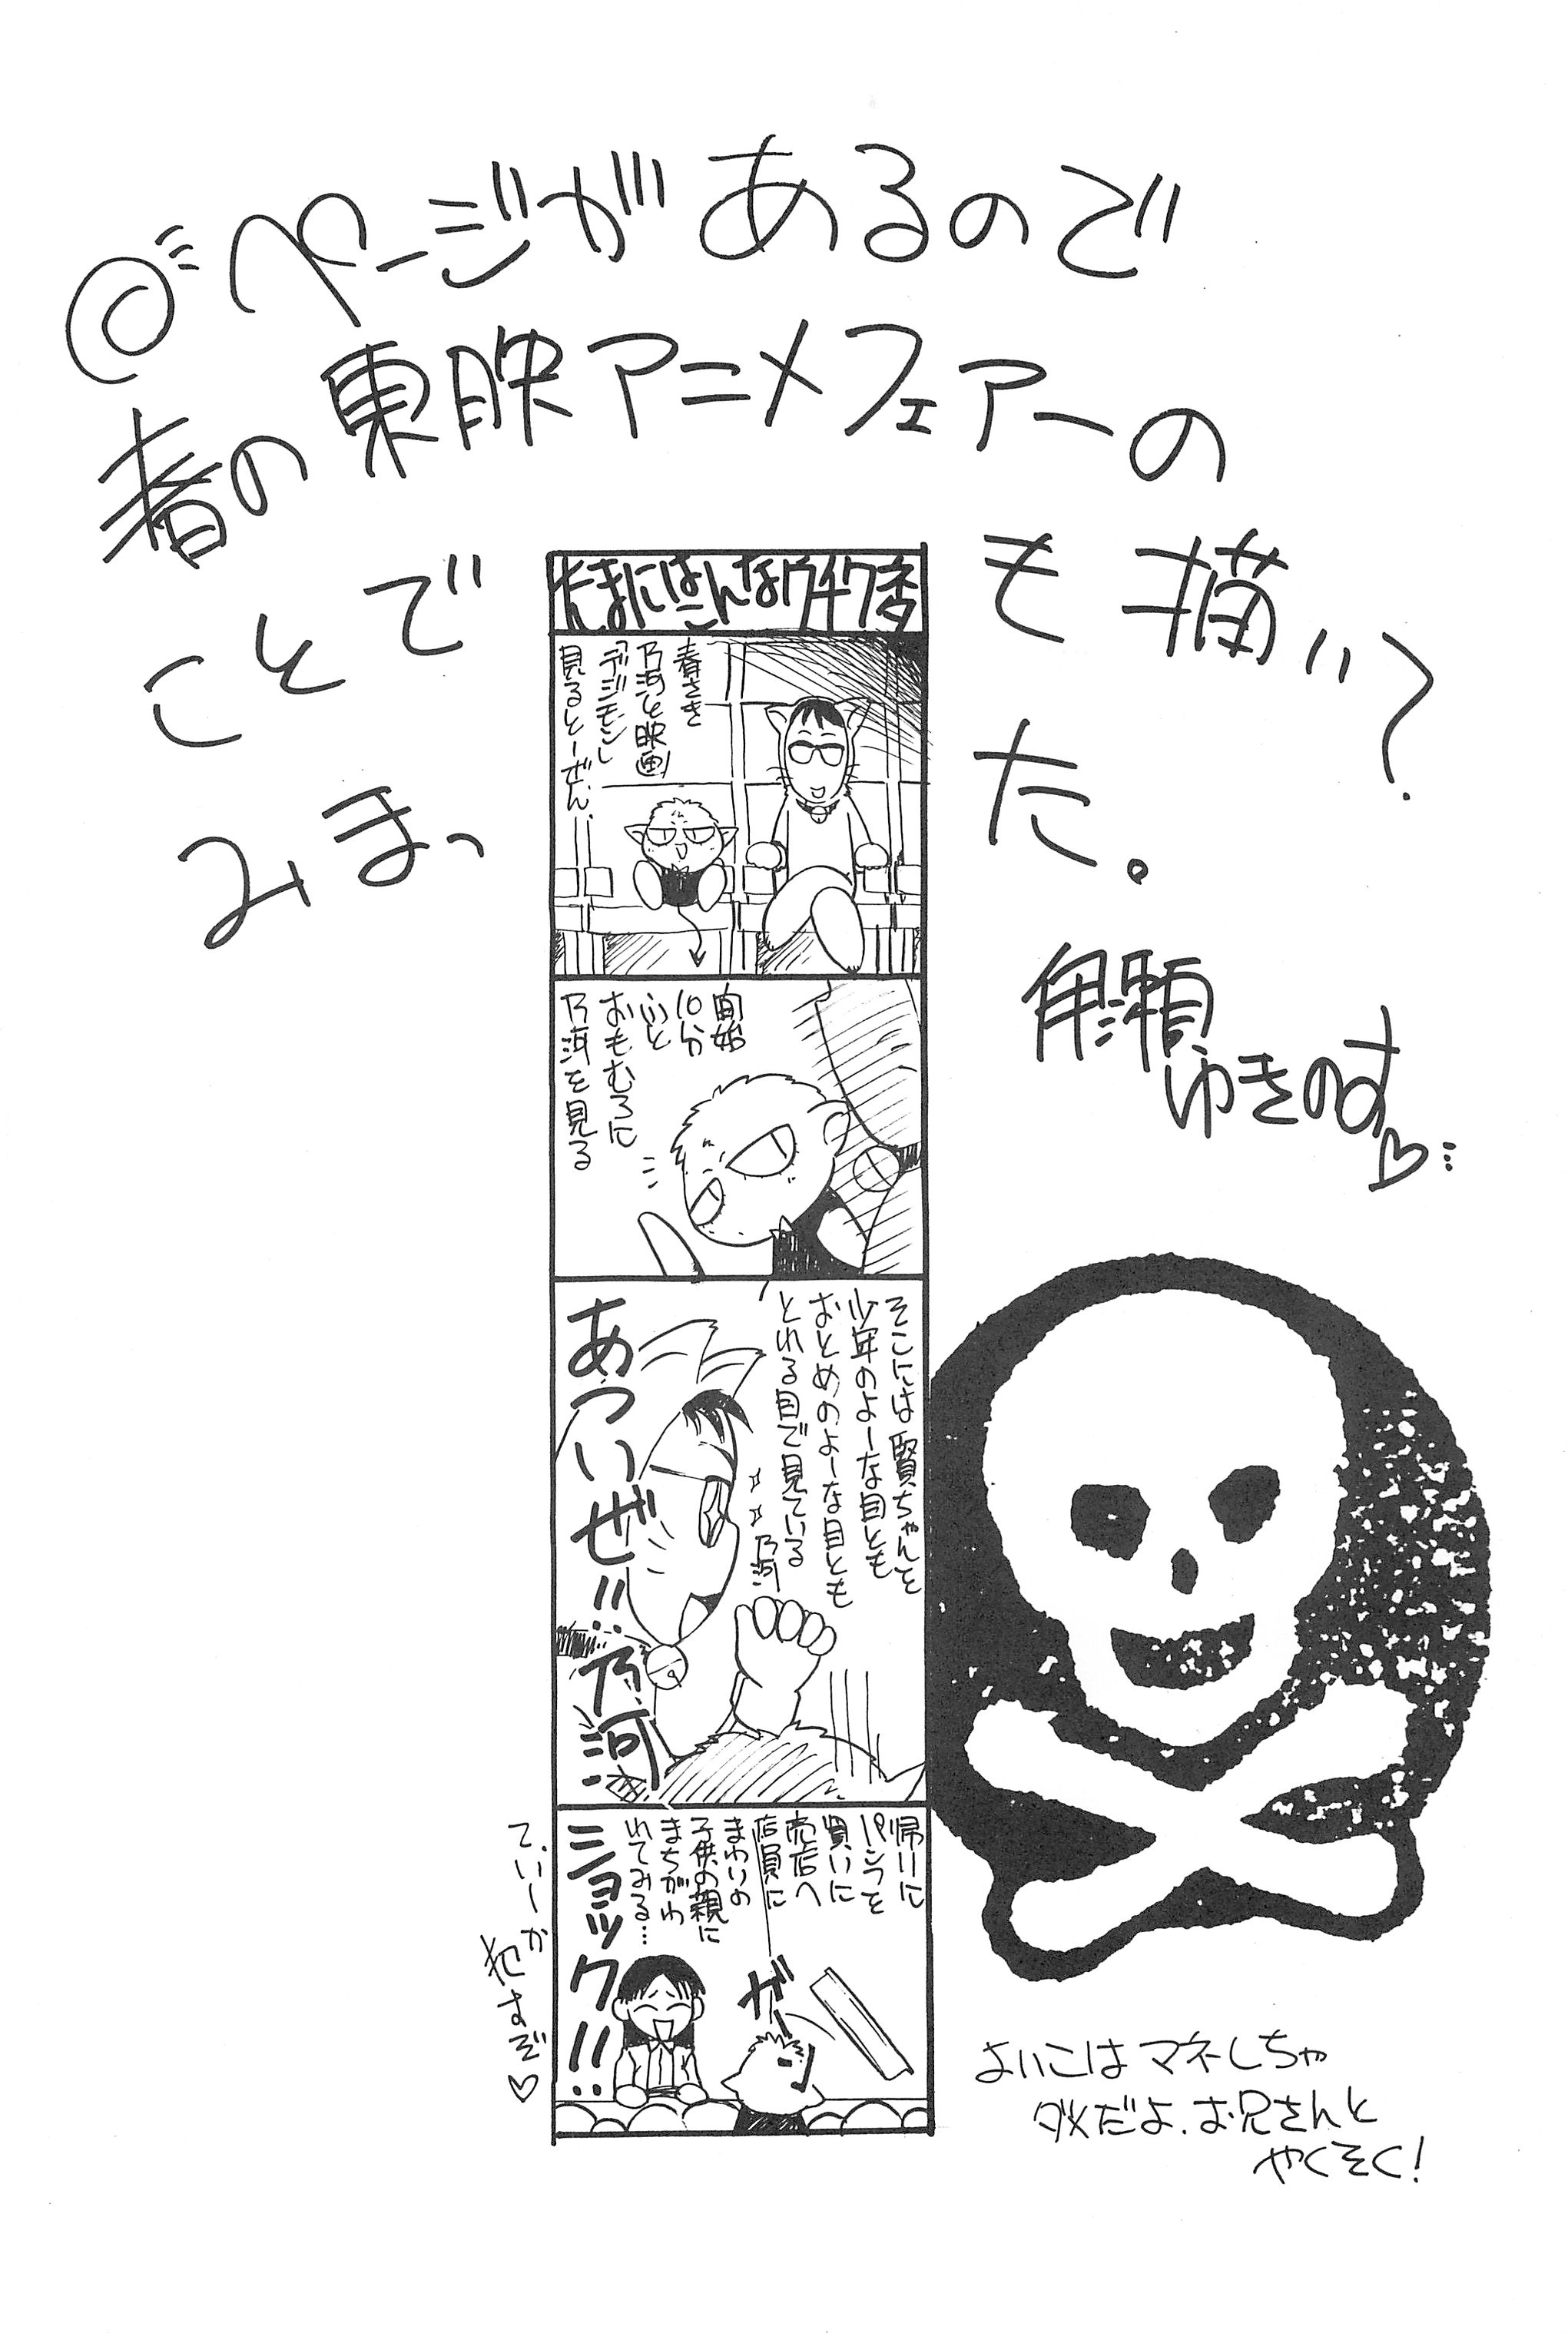 ページがあるので
春の東映アニメフェアーの
ことでも描いて
みまった。
ゆきのす♡
たまにはこんなウチワネタ
春さき
乃河と映画
「デジモン」
見るとーぜん、
開始
10分
ふと
おもむろに
乃河を見る
そこには賢ちゃんを
少年のよーな目とも
おとめのよーな目とも
とれる目で見ている
乃河
あついぜ!!乃河
帰りに
パンフを
買いに
売店へ
店員に
まわりの
子供の親に
まちがわ
れてみる…
ガーン
ショック!!
て、いーか
犯すぞ♡
よいこはマネしちゃ
ダメだよ、お兄さんと
やくそく!